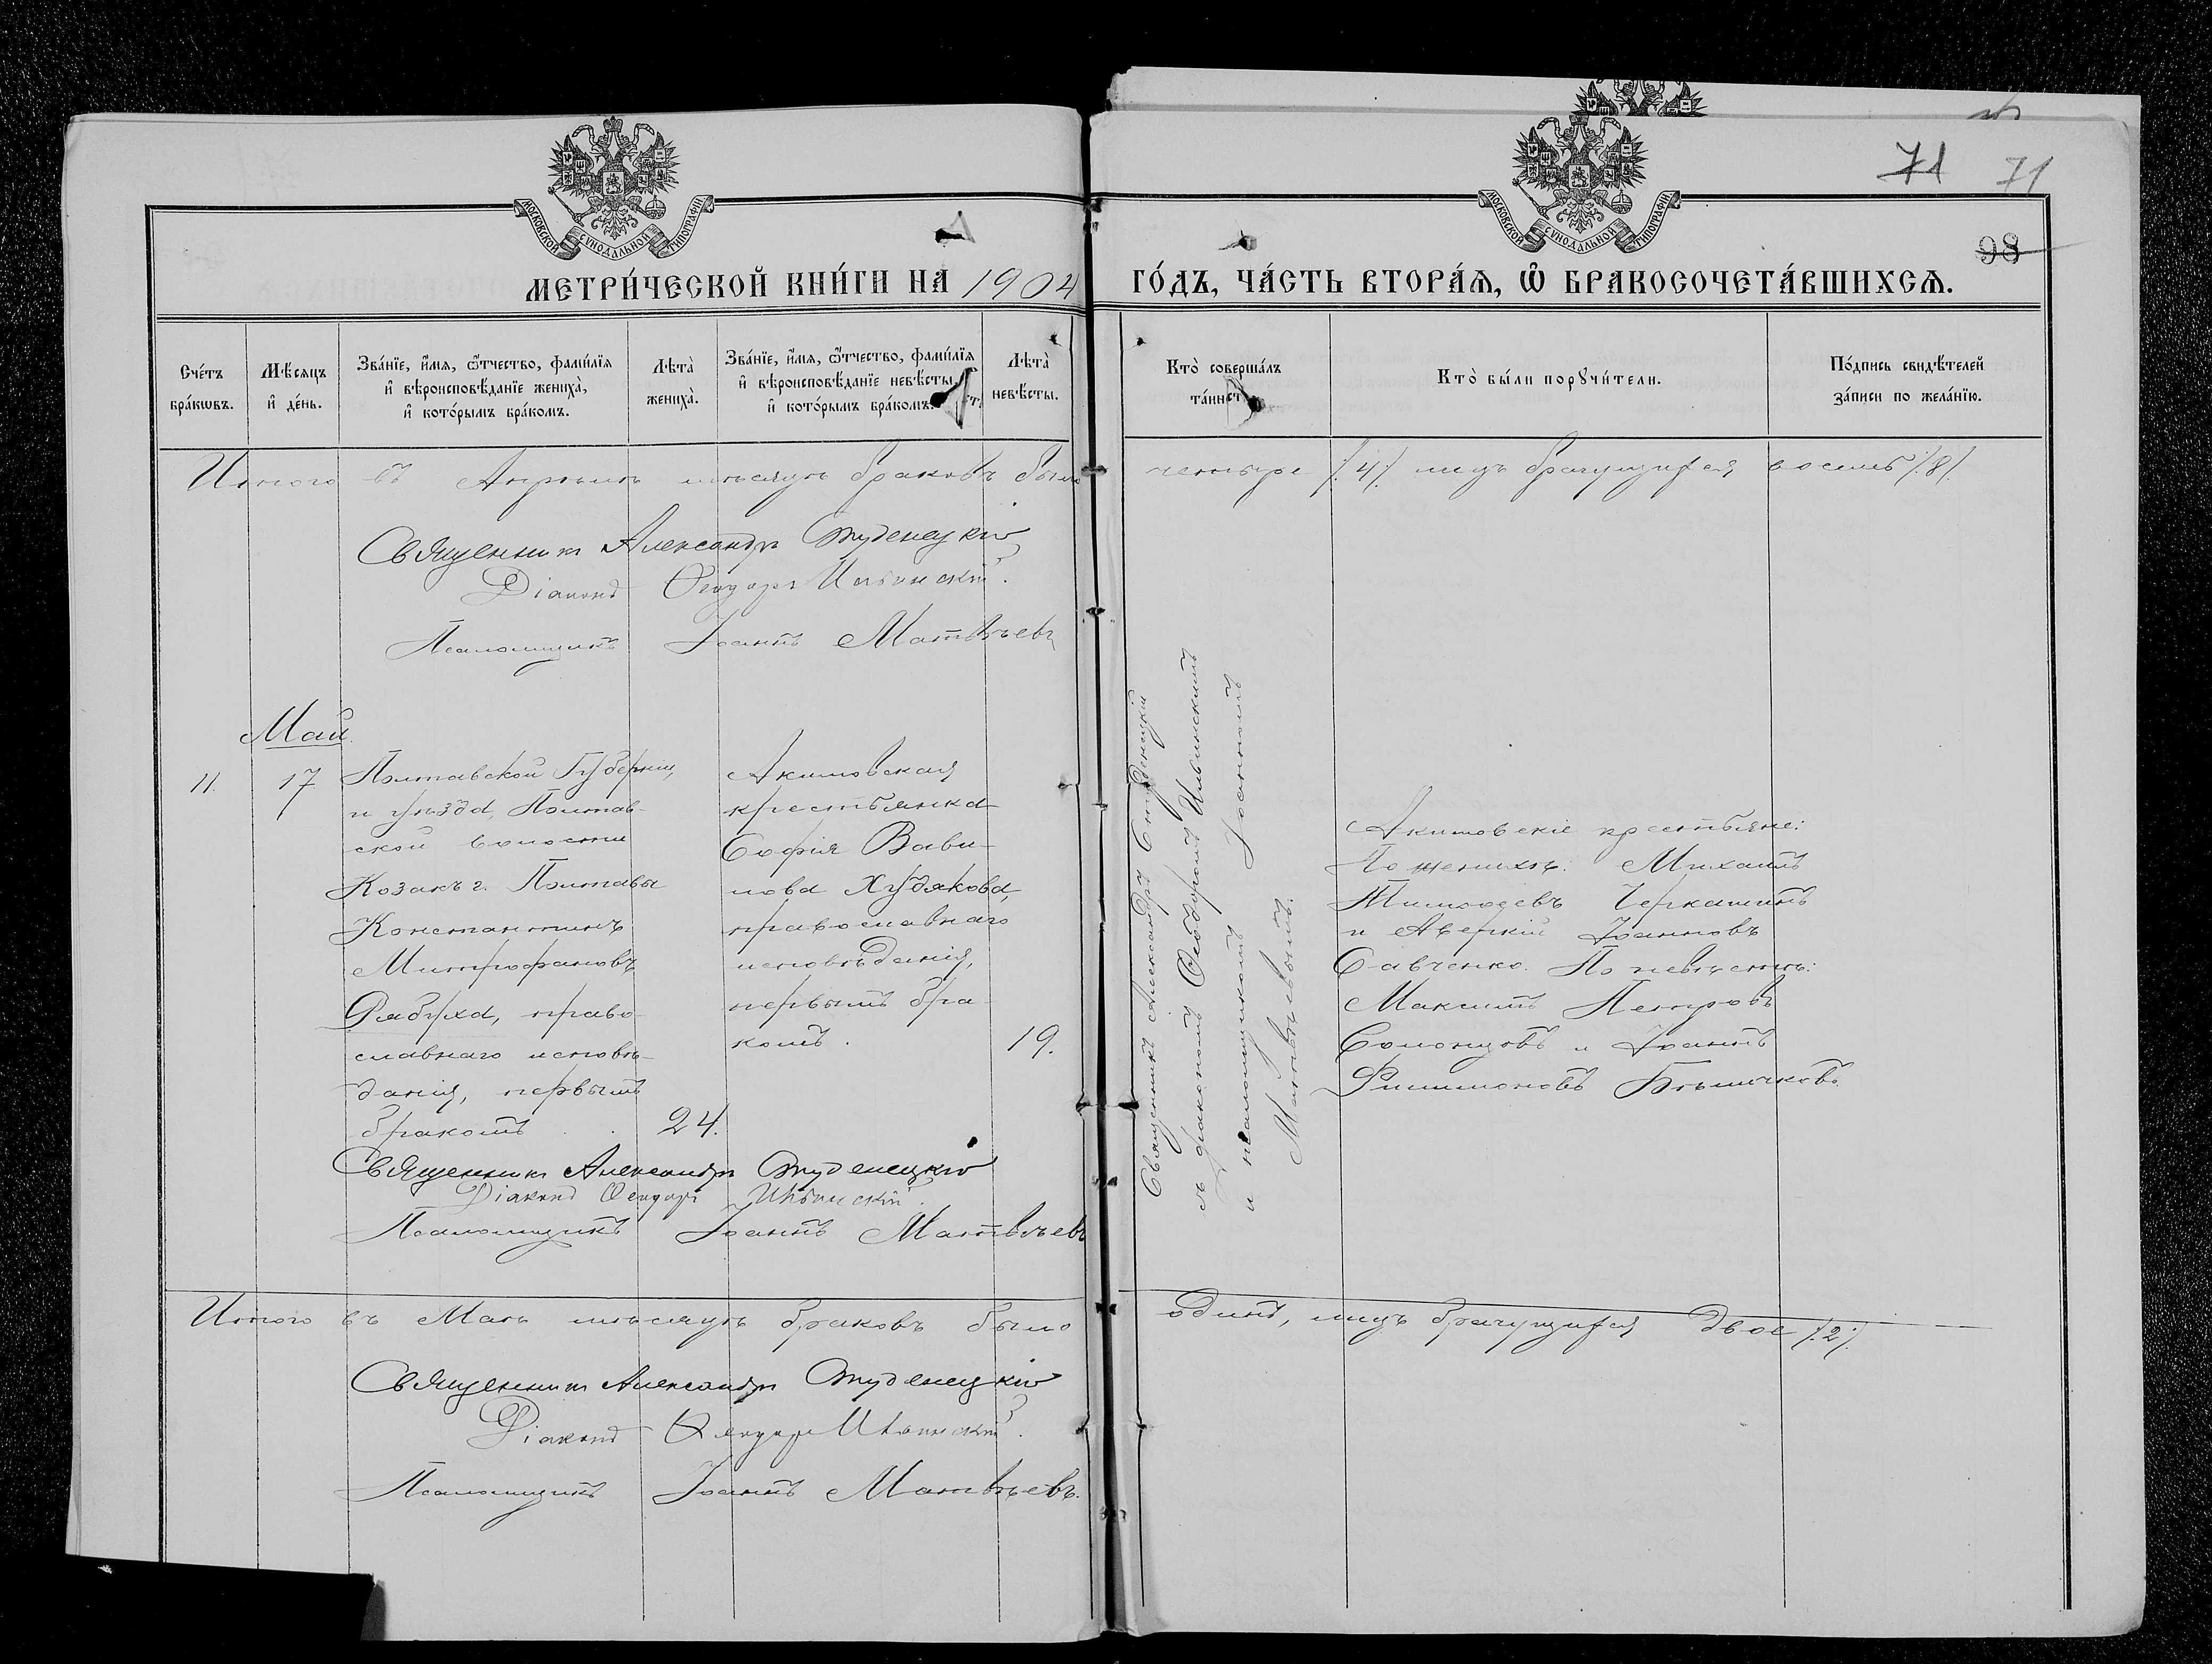 71 71
98
МОСКОВСКОЙ СѴНОДАЛЬНОЙ ТИПОГРАФІИ.
МОСКОВСКОЙ СѴНОДАЛЬНОЙ ТИПОГРАФІИ.
МЕТРИ́ЧЕСКОЙ КНИ́ГИ НА 1904 ГО́ДЪ, ЧА́СТЬ ВТОРА́Ѧ, Ѡ҆ БРАКОСОЧЕТА́ВШИХСѦ.
Сче́тъ
бра́кѡвъ.
Мѣ́сѧцъ
и҆ де́нь.
Зва́нїе, и҆́мѧ, ѻ҆́тчество, фами́лїѧ
и҆ вѣроисповѣ́данїе жениха̀,
и҆ кото́рымъ бра́комъ.
Лѣта̀
жениха̀.
Зва́нїе, и҆́мѧ, ѻ҆́тчество, фами́лїѧ
и҆ вѣроисповѣ́данїе невѣ́сты,
и҆ кото́рымъ бра́комъ.
Лѣта̀
невѣ́сты.
Кто̀ соверша́лъ
та́инст
Кто̀ бы́ли порꙋчи́тели.
По́дпись свидѣ́телей
за́писи по жела́нїю.
Итого въ Апрѣлѣ мѣсяцѣ браковъ было четыре /.4/. лицъ брачущихся восемь /.8/.
Священникъ Александръ Студенецкій
Діаконъ Ѳеодоръ Ильинскій.
Псаломщикъ Іоаннъ Матвѣевъ
Май.
11. 17
Полтавской Губерніи,
и уѣзда, Полтав-
ской волости
Козакъ г. Полтавы
Константинъ
Митрофановъ
Рябуха, право-
славнаго исповѣ-
данія, первымъ
бракомъ . . 24.
Акимовская
крестьянка
Софія Вави-
лова Худякова,
православнаго
исповѣданія,
первымъ бра-
комъ. 19.
Священникъ Александръ Студенецкій
съ діакономъ Ѳеодоромъ Ильинскимъ
и псаломщикомъ Іоанномъ
Матвѣевымъ.
Акимовскіе крестьяне:
По женихѣ: Михаилъ
Тимоѳеевъ Черкашинъ
и Аверкій Іоанновъ
Савченко. По невѣстѣ:
Максимъ Петровъ
Солонцовъ и Іоаннъ
Филимоновъ Блышчковъ.
Священникъ Александръ Студенецкій
Діаконъ Ѳеодоръ Ильинскій.
Псаломщикъ Іоаннъ Матвѣевъ
Итого въ Маѣ мѣсяцѣ браковъ было одинъ, лицъ брачущихся двое /.2/.
Священникъ Александръ Студенецкій
Діаконъ Ѳеодоръ Ильинскій.
Псаломщикъ Іоаннъ Матвѣевъ.